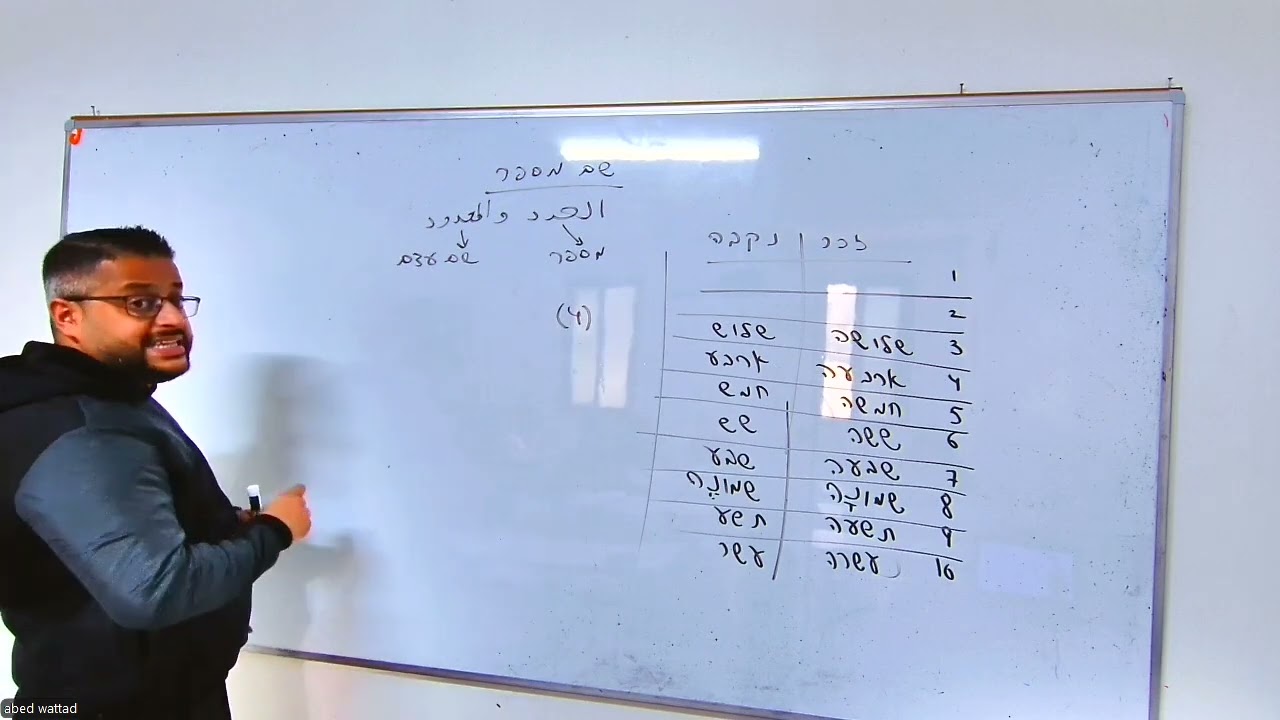 שם מספר
العدد والمعدود
מספר שם עצם
(4)
זכר נקבה
1
2
3 שלושה שלוש
4 ארבעה ארבע
5 חמשה חמש
6 ששה שש
7 שבעה שבע
8 שמונָה שמונֶה
9 תשעה תשע
10 עשרה עשר
abed wattad